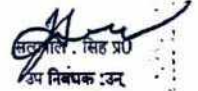 सिंह प्र०
उप निबंधक :उन्